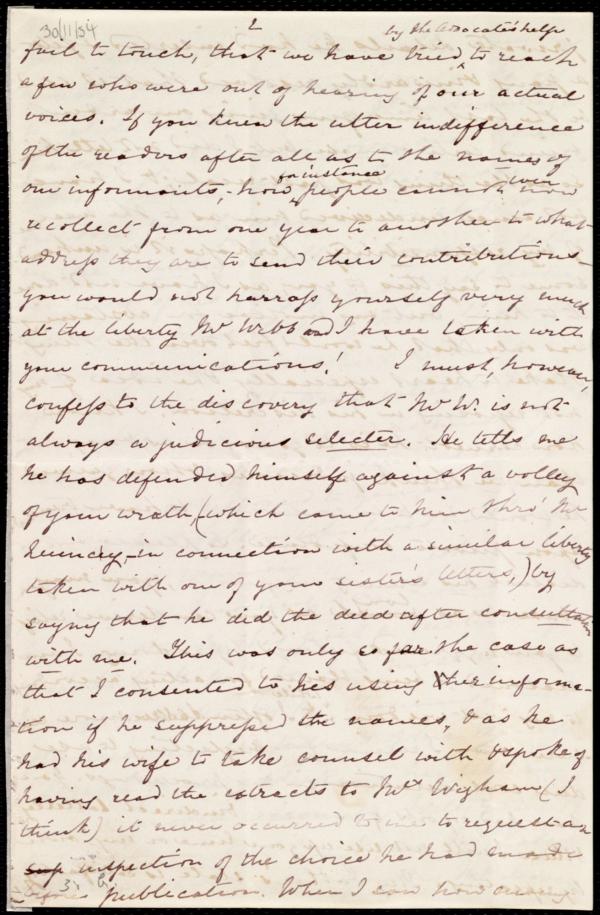 30/11/54
2
by the Advocate's help
fail to touch, that we have tried ‸ to reach
a few who were out of hearing of our actual
voices. If you knew the utter indifference
of the readers after all as to the names of
for instance
our informants, - how ‸ people cannot even
recollect from one year to another to what
address they are to send their contributions -
you would not harrass yourself very much
at the liberty Mr Webb and I have taken with
your communications! I must, however,
confess to the discovery that Mr W. is not
always a judicious selecter. He tells me
he has defended himself against a volley
of your wrath, (which came to him thro' Mr
Quincey, in connection with a similar liberty
taken with one of your sister's letters,) by
saying that he did the deed after consultation
with me. This was only so far the case as
that I consented to his using the informa-
tion if he suppressed the names, & as he
had his wife to take counsel with & spoke of
having read the extracts to Mrs Wigham (I
think) it never occurred to me to request an
sup inspection of the choice he had made
before publication. When I can now